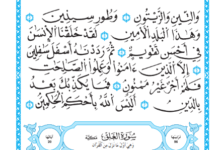 وَالتِّينِ وَالزَّيْتُونِ وَطُورِ سِينِينَ
وَهَٰذَا الْبَلَدِ الْأَمِينِ لَقَدْ خَلَقْنَا الْإِنسَٰنَ
فِي أَحْسَنِ تَقْوِيمٍ ثُمَّ رَدَدْنَٰهُ أَسْفَلَ سَٰفِلِينَ
إِلَّا الَّذِينَ ءَامَنُوا وَعَمِلُوا الصَّٰلِحَٰتِ
فَلَهُمْ أَجْرٌ غَيْرُ مَمْنُونٍ فَمَا يُكَذِّبُكَ بَعْدُ
بِالدِّينِ أَلَيْسَ اللَّهُ بِأَحْكَمِ الْحَٰكِمِينَ
سُورَةُ الْعَلَقِ مَكِّيَّة